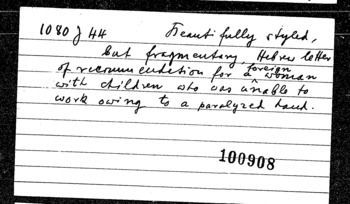 1080 J 44 Beautifully styled,
but fragmentary, Hebrew letter
of recommendation for a foreign woman
with children who was unable to
work owing to a paralyzed hand.
100908